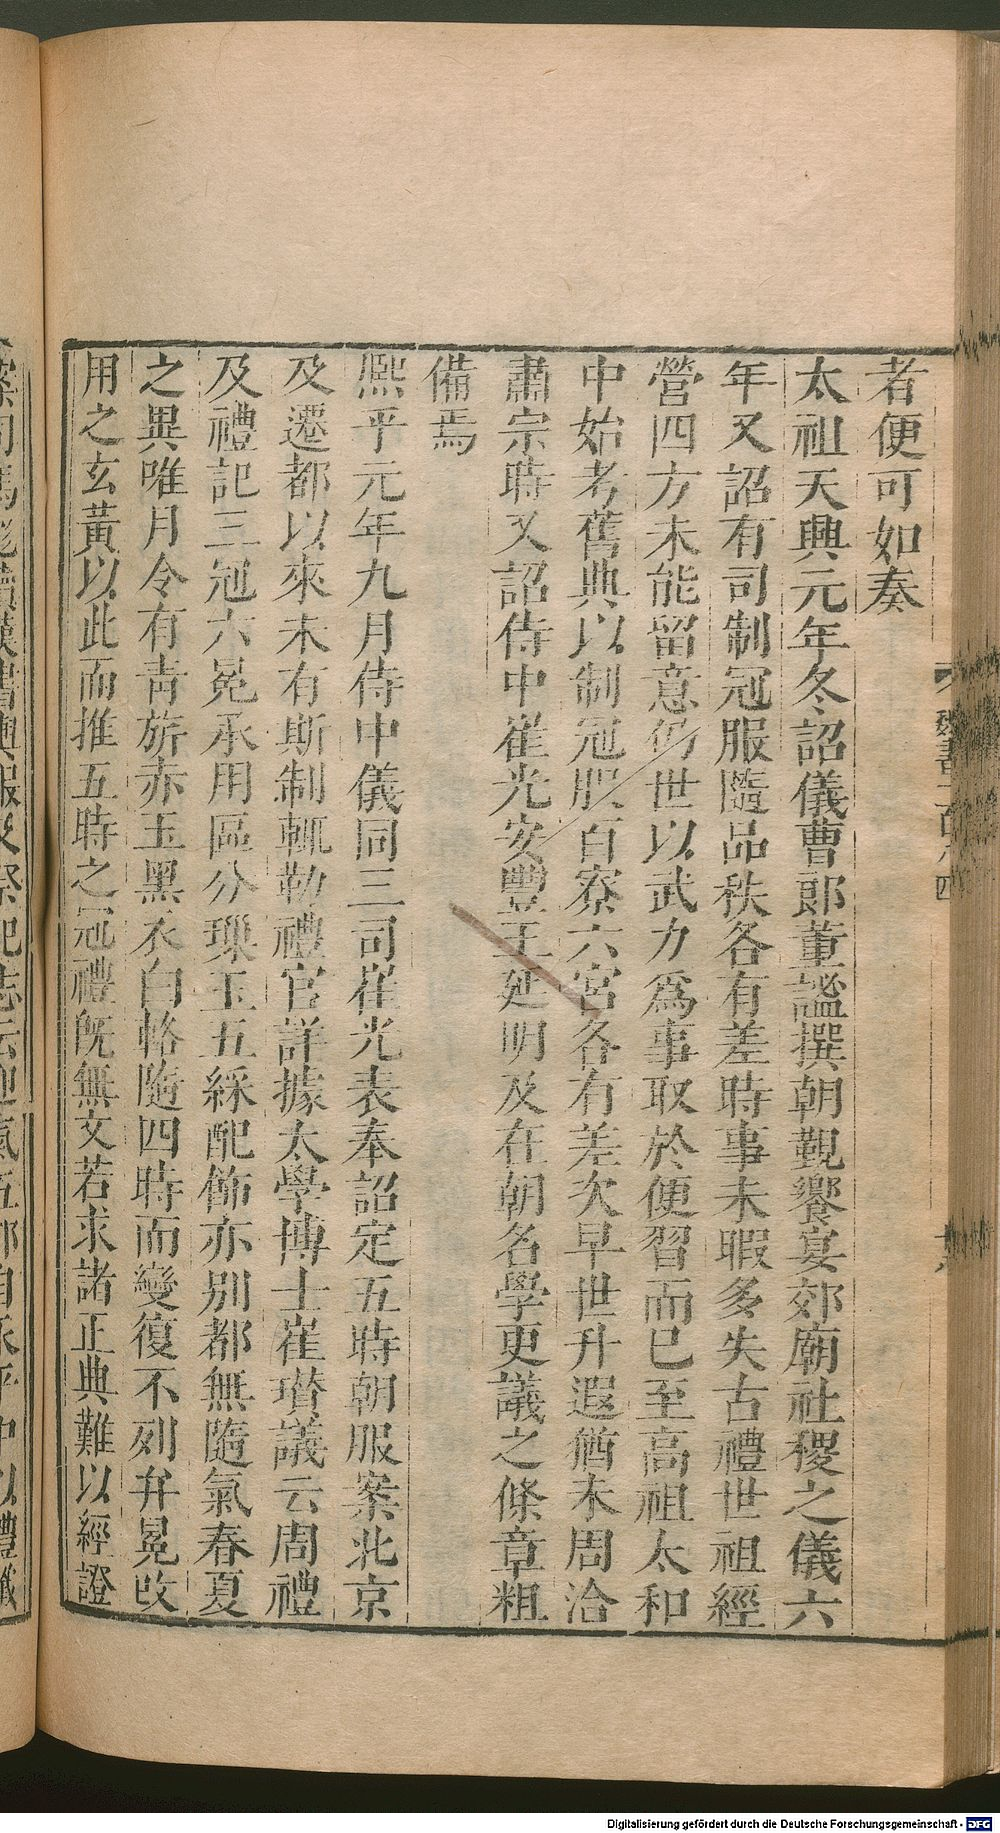 者便可如奏
太祖天興元年冬詔儀曹郎董謐撰朝覲饗宴郊廟社稷之儀六
年又詔有司制冠服隨品秩各有差時事未暇多失古禮世祖經
營四方未能留意仍世以武力為事取於便習而已至高祖太和
中始考舊典以制冠服百寮六宮各有差次早世升遐猶未周洽
肅宗時又詔侍中崔光安豐王延明及在朝名學更議之條章粗
備焉
熙平元年九月侍中儀同三司崔光表奉詔定五時朝服案北京
及遷都以來未有斯制輒勒禮官詳據太學博士崔瓚議云周禮
及禮記三冠六冕承用區分璪玉五綵配飾亦別都無隨氣春夏
之異唯月令有青旂赤玉黑衣白輅隨四時而變復不列弁冕改
用之玄黃以此而推五時之冠禮既無文若求諸正典難以經證
案司馬彪續漢書輿服及祭祀志云迎氣五郊自永平中以禮讖
魏書一百八四
Digitalisierung gefördert durch die Deutsche Forschungsgemeinschaft - DFG